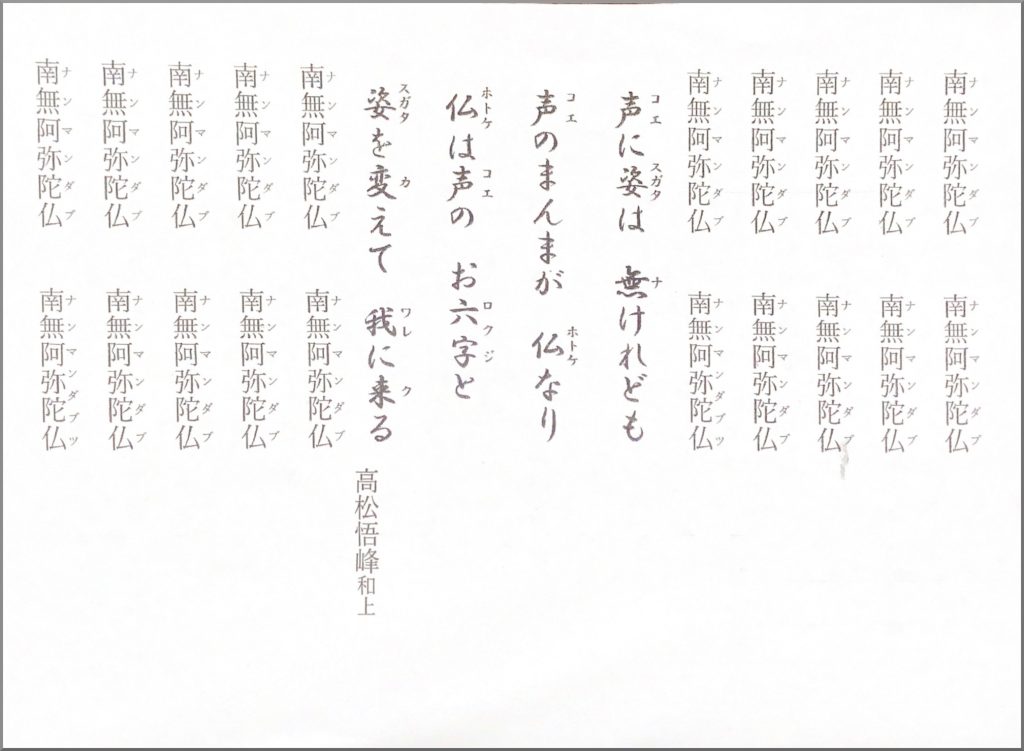 ナンマンダブ　ナンマンダブ
南無阿弥陀仏　南無阿弥陀仏
ナンマンダブ　ナンマンダブ
南無阿弥陀仏　南無阿弥陀仏
ナンマンダブ　ナンマンダブ
南無阿弥陀仏　南無阿弥陀仏
ナンマンダブ　ナンマンダブ
南無阿弥陀仏　南無阿弥陀仏
ナンマンダブ　ナンマンダブツ
南無阿弥陀仏　南無阿弥陀仏
コエ　スガタ　ナ
声に姿は　無けれども
コエ　ホトケ
声のまんまが　仏なり
ホトケ　コエ　ロクジ
仏は声の　お六字と
スガタ　カ　ワレ　ク
姿を変えて　我に来る
高松悟峰和上
ナンマンダブ　ナンマンダブ
南無阿弥陀仏　南無阿弥陀仏
ナンマンダブ　ナンマンダブ
南無阿弥陀仏　南無阿弥陀仏
ナンマンダブ　ナンマンダブ
南無阿弥陀仏　南無阿弥陀仏
ナンマンダブ　ナンマンダブ
南無阿弥陀仏　南無阿弥陀仏
ナンマンダブ　ナンマンダブツ
南無阿弥陀仏　南無阿弥陀仏